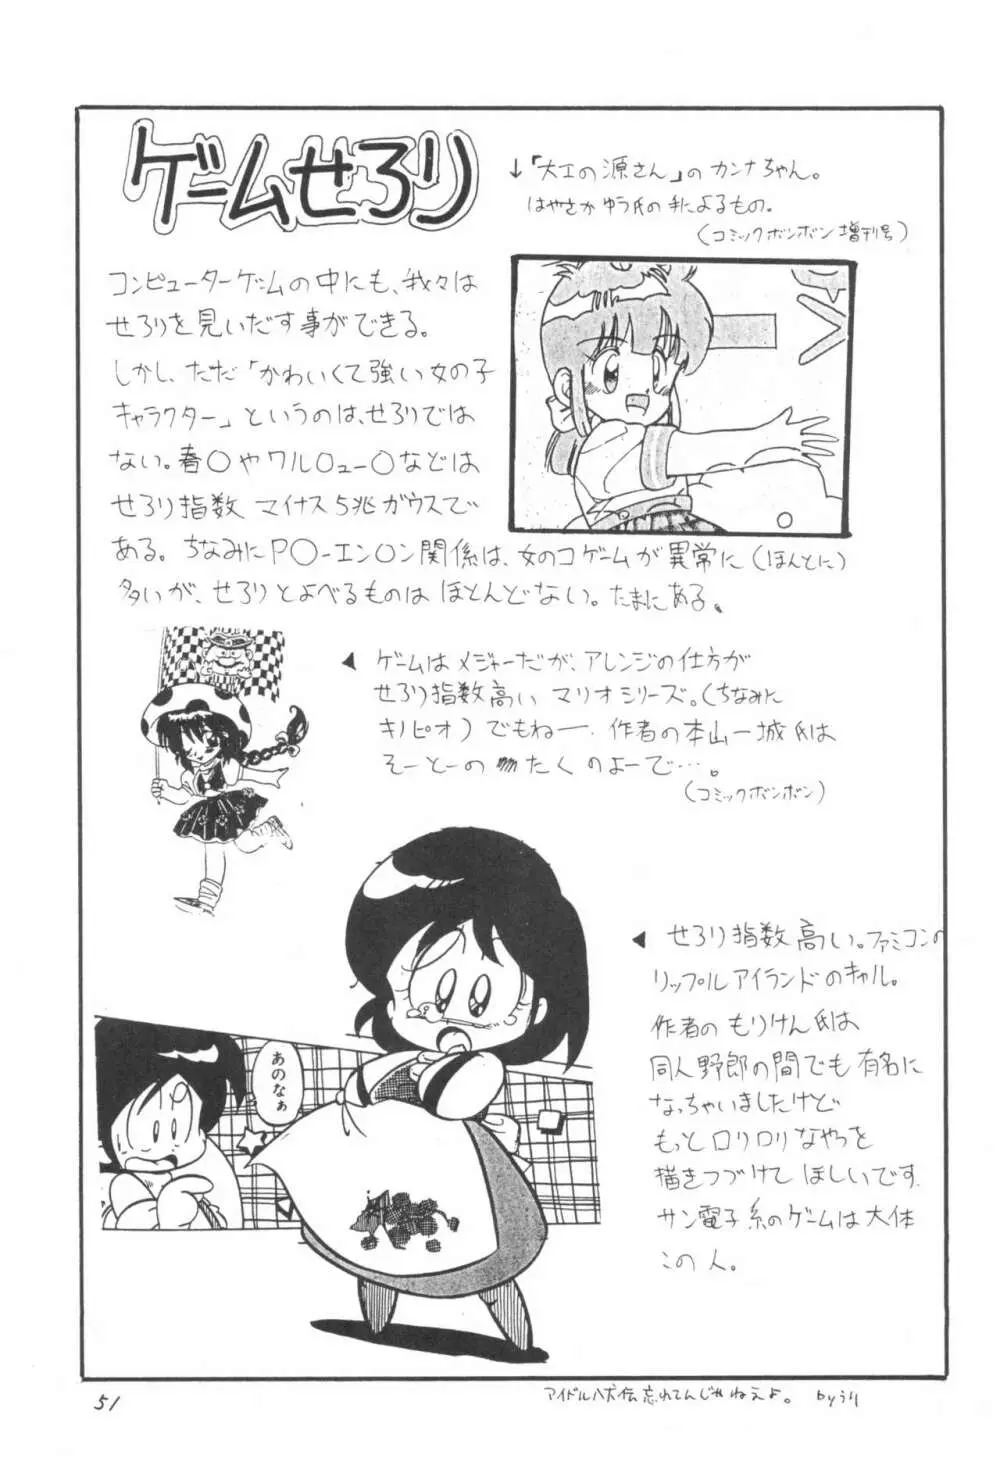 ゲームせろり
↓「大工の源さん」のカンナちゃん。
はやさかゆう氏の手によるもの。
(コミックボンボン増刊号)
コンピューターゲームの中にも、我々は
せろりを見いだす事ができる。
しかし、ただ「かわいくて強い女の子
キャラクター」というのは、せろりでは
ない。春〇やワル〇ュー〇などは
せろり指数 マイナス5兆ガウスで
ある。ちなみにP〇-エン〇ン関係は、女のコゲームが異常に(ほんとに)
多いが、せろりとよべるものは ほとんどない。たまにある。
◀ ゲームはメジャーだが、アレンジの仕方が
せろり指数高い マリオシリーズ。(ちなみに
キノピオ)でもねー、作者の本山一城氏は
そーとーの たくのよーで…。
(コミックボンボン)
◀ せろり指数高い。ファミコンの
リップルアイランドのキャル。
作者の もりけん氏は
同人野郎の間でも有名に
なっちゃいましたけど
もっとロリロリなやつを
描きつづけて ほしいです。
サン電子系のゲームは大体
この人。
あのなぁ
51
アイドル八犬伝忘れてんじゃねえよ。 by うり